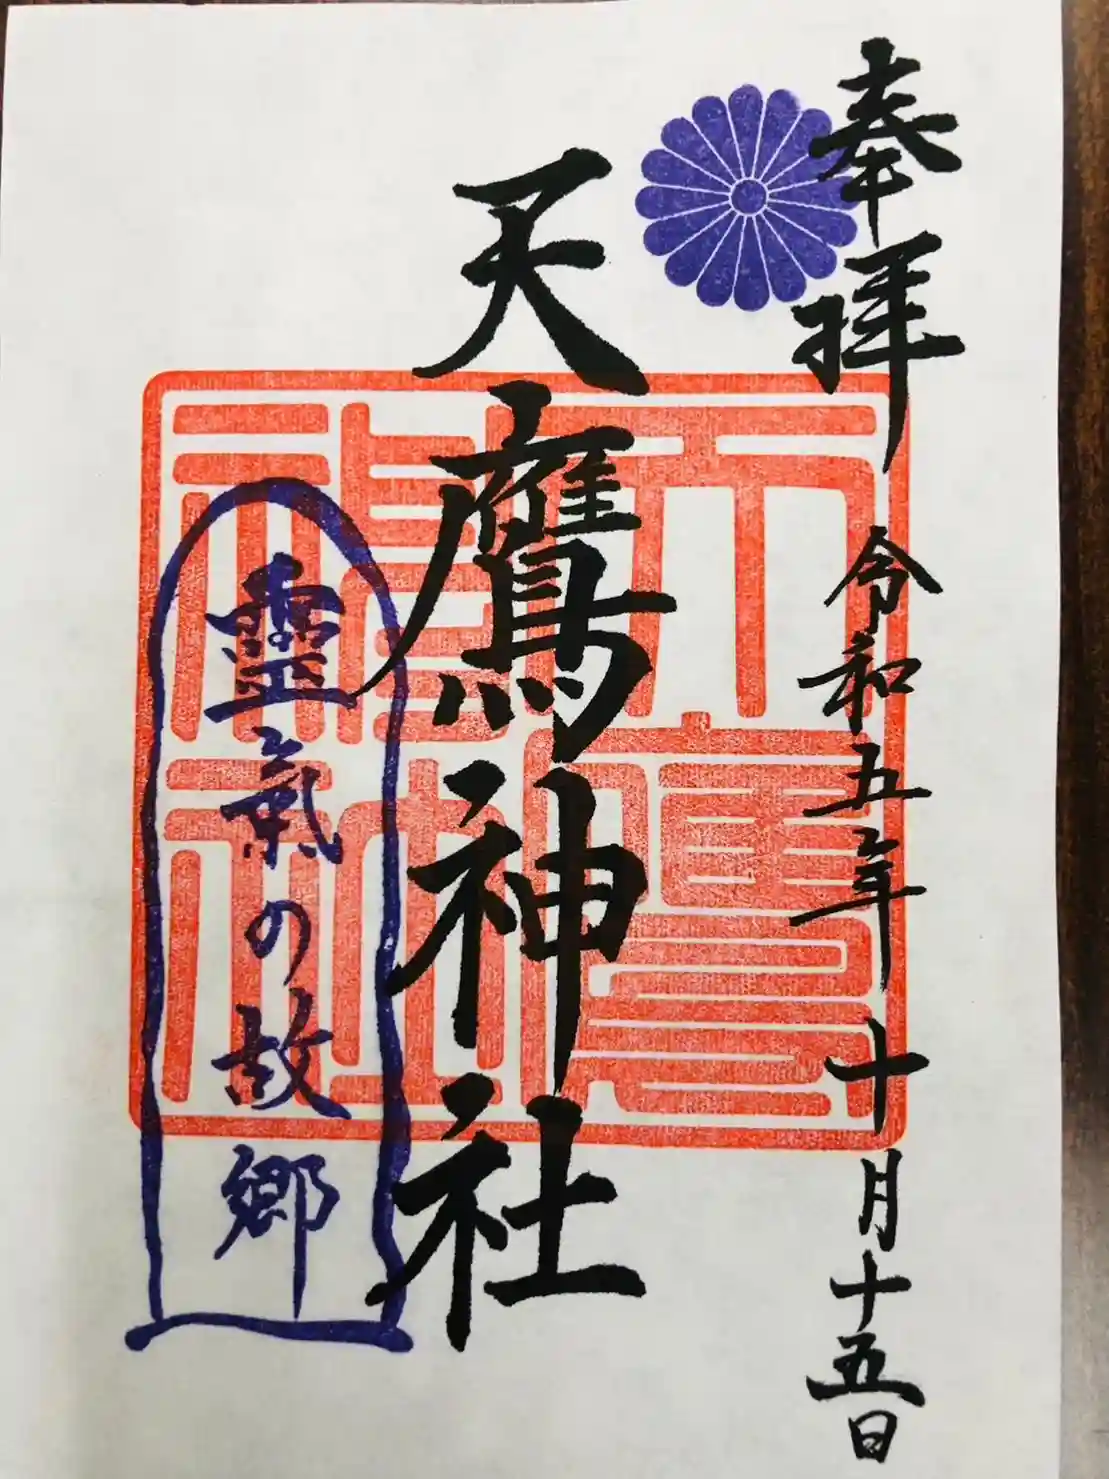 奉拝
令和五年十月十五日
天鷹神社
天鷹神社
靈氣の故郷